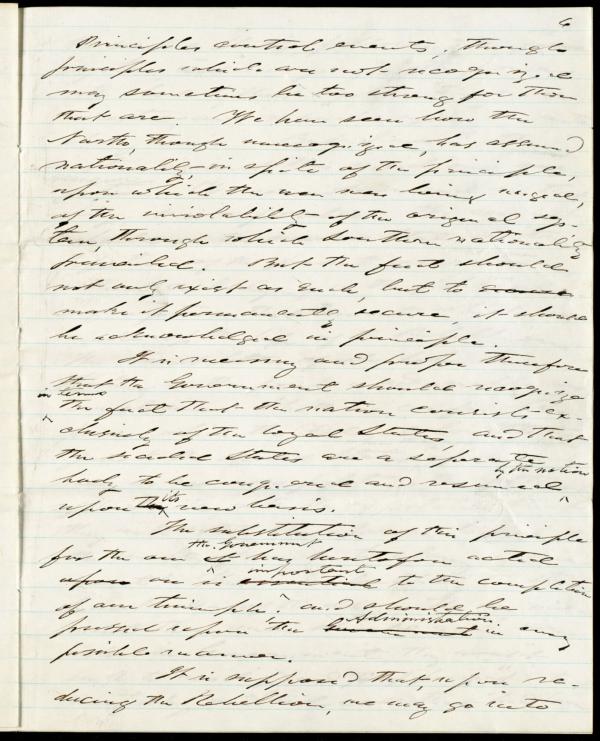 6
Principles control events, though
principles which are not recognized
may sometimes be too strong for those
that are. We have seen how the
North, though unrecognized, has assumed
nationality in spite of the principle,
upon which the war was being waged,
of the inviolability of the original sys-
tem, through which Southern nationality
prevailed. But the fact should
not only exist as such, but to
make it permanently secure, it should
be acknowledged in principle.
It is necessary and proper therefore
that the Government should recognize
in terms
the fact that the nation consists ex-
clusively of the loyal States, and that
the seceded States are a separate
by the nation
body to be conquered and resumed
upon its new basis.
The substitution of this principle
the Government
for the one has heretofore acted
important
upon on is essential to the completion
of our triumph, and should be
Administration
pressed upon the Government in every
possible manner.
It is supposed that, upon re-
ducing the Rebellion, we may go into